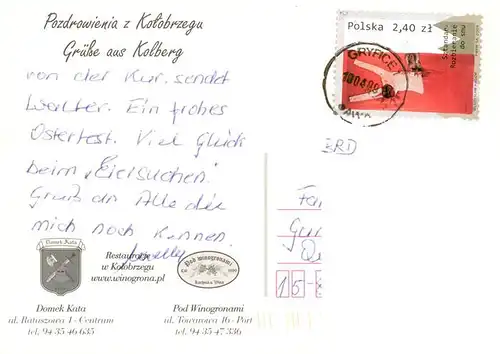 Pozdrowienia z Kołobrzegu
Grüße aus Kolberg
von der Kur sendet
Walter. Ein frohes
Osterfest. Viel Glück
beim "Eiersuchen".
Gruß an Alle die
mich noch kennen.
Polska 2,40 zł
Sztandar
Rozbieranie
do snu
GRYFICE 1
BRD
15-
Domek Kata
Restauracje
w Kołobrzegu
www.winogrona.pl
Pod winogronami
Domek Kata
ul. Ratuszowa 1 - Centrum
tel. 94 35 46 635
Pod Winogronami
ul. Towarowa 16 - Port
tel. 94 35 47 336